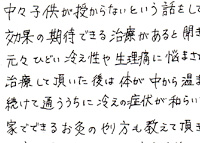 中々子供が授からないという話をして
効果の期待できる治療があると聞き
元々ひどい冷え性や生理痛に悩まさ
治療して頂いた後は体が中から温ま
続けて通ううちに冷えの症状が和らい
家でできるお灸のやり方も教えて頂き